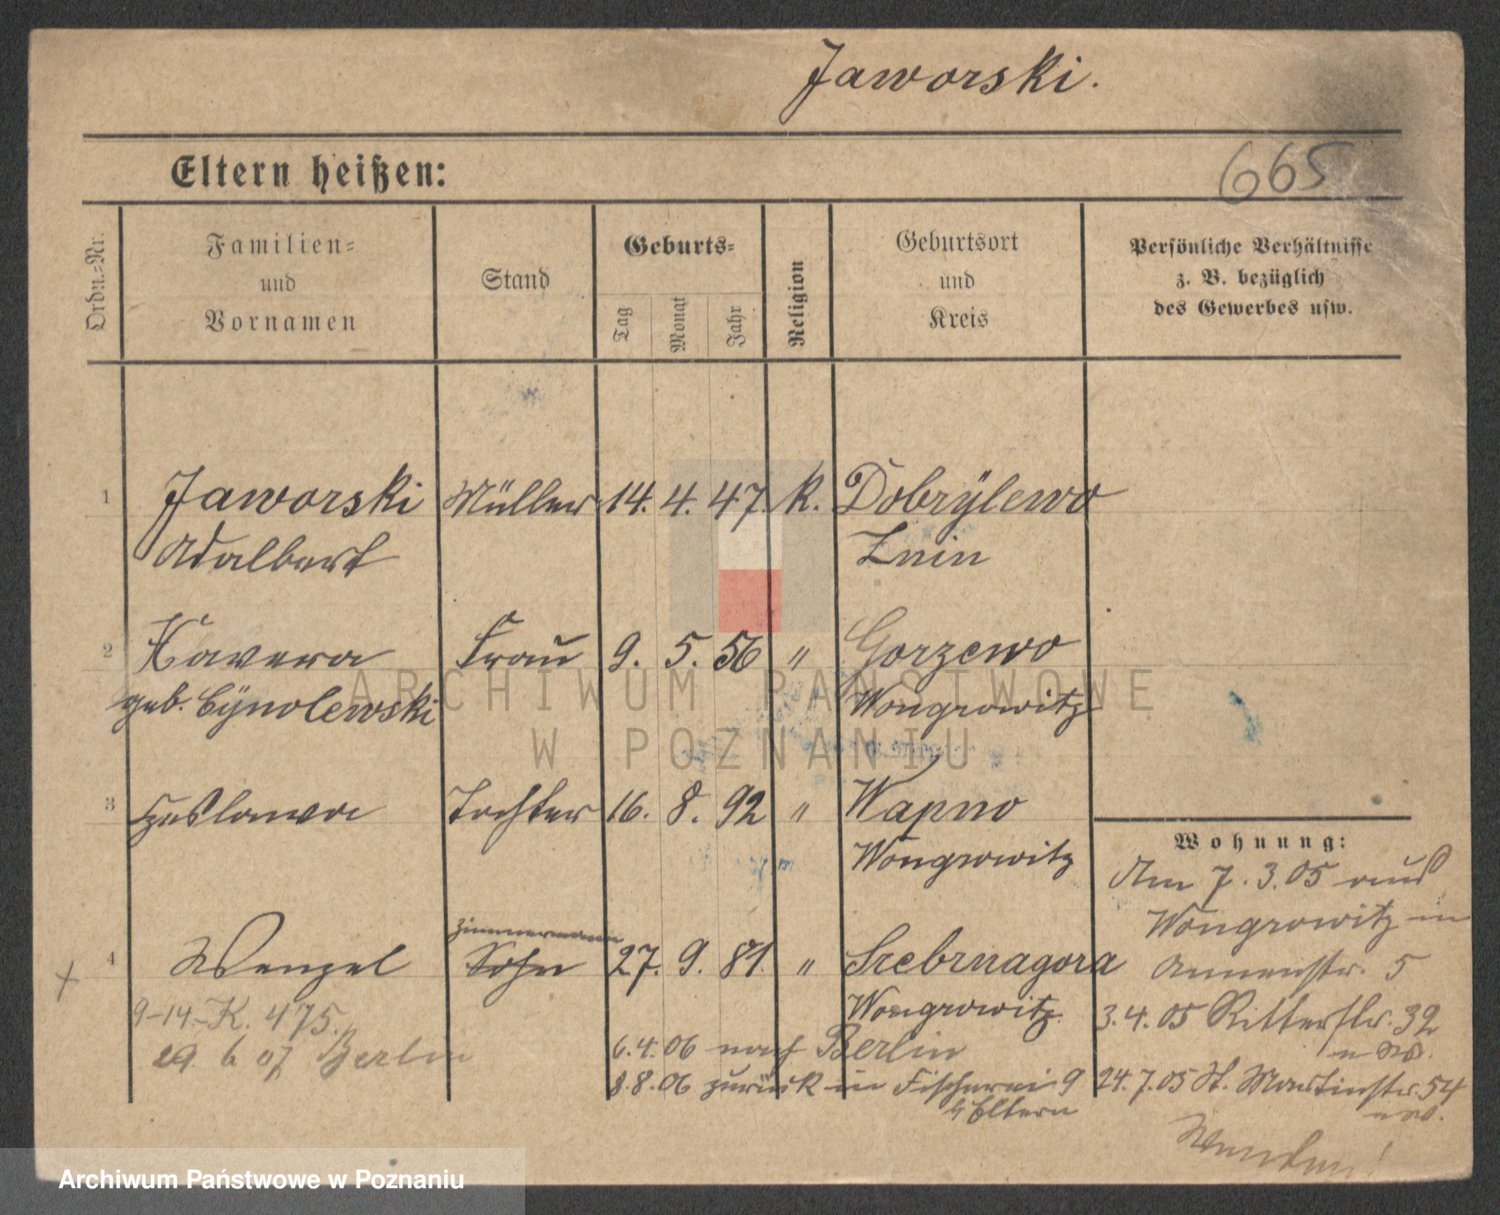 Jaworski.
Eltern heißen:
665
Ordn.=Nr.
Familien=
und
Vornamen
Stand
Geburts=
Tag
Monat
Jahr
Religion
Geburtsort
und
Kreis
Persönliche Verhältnisse
z. B. bezüglich
des Gewerbes usw.
1 Jaworski Müller 14. 4. 47. k. Dobrÿlewo
Adalbert Znin
2 Xavera Frau 9. 5. 56 " Gorzewo
geb. Cÿnolewski Wongrowitz
3 Tochter 16. 8. 92 " Wapno
Wongrowitz
Wohnung:
Am 7.3.05 aus
Wongrowitz in
Annenstr. 5
zimmermann
4 Wenzel Sohn 27. 9. 81. " Srebrnagora
Wongrowitz.
3.4.05 Ritterstr. 32
9-14-K. 475.
29. 6 07 Berlin
6.4.06 nach Berlin
8.8.06 zurück in Fischerei 9
Eltern
24.7.05 St. Martinstr. 54
Wenden!
ARCHIWUM PAŃSTWOWE
W POZNANIU
Archiwum Państwowe w Poznaniu